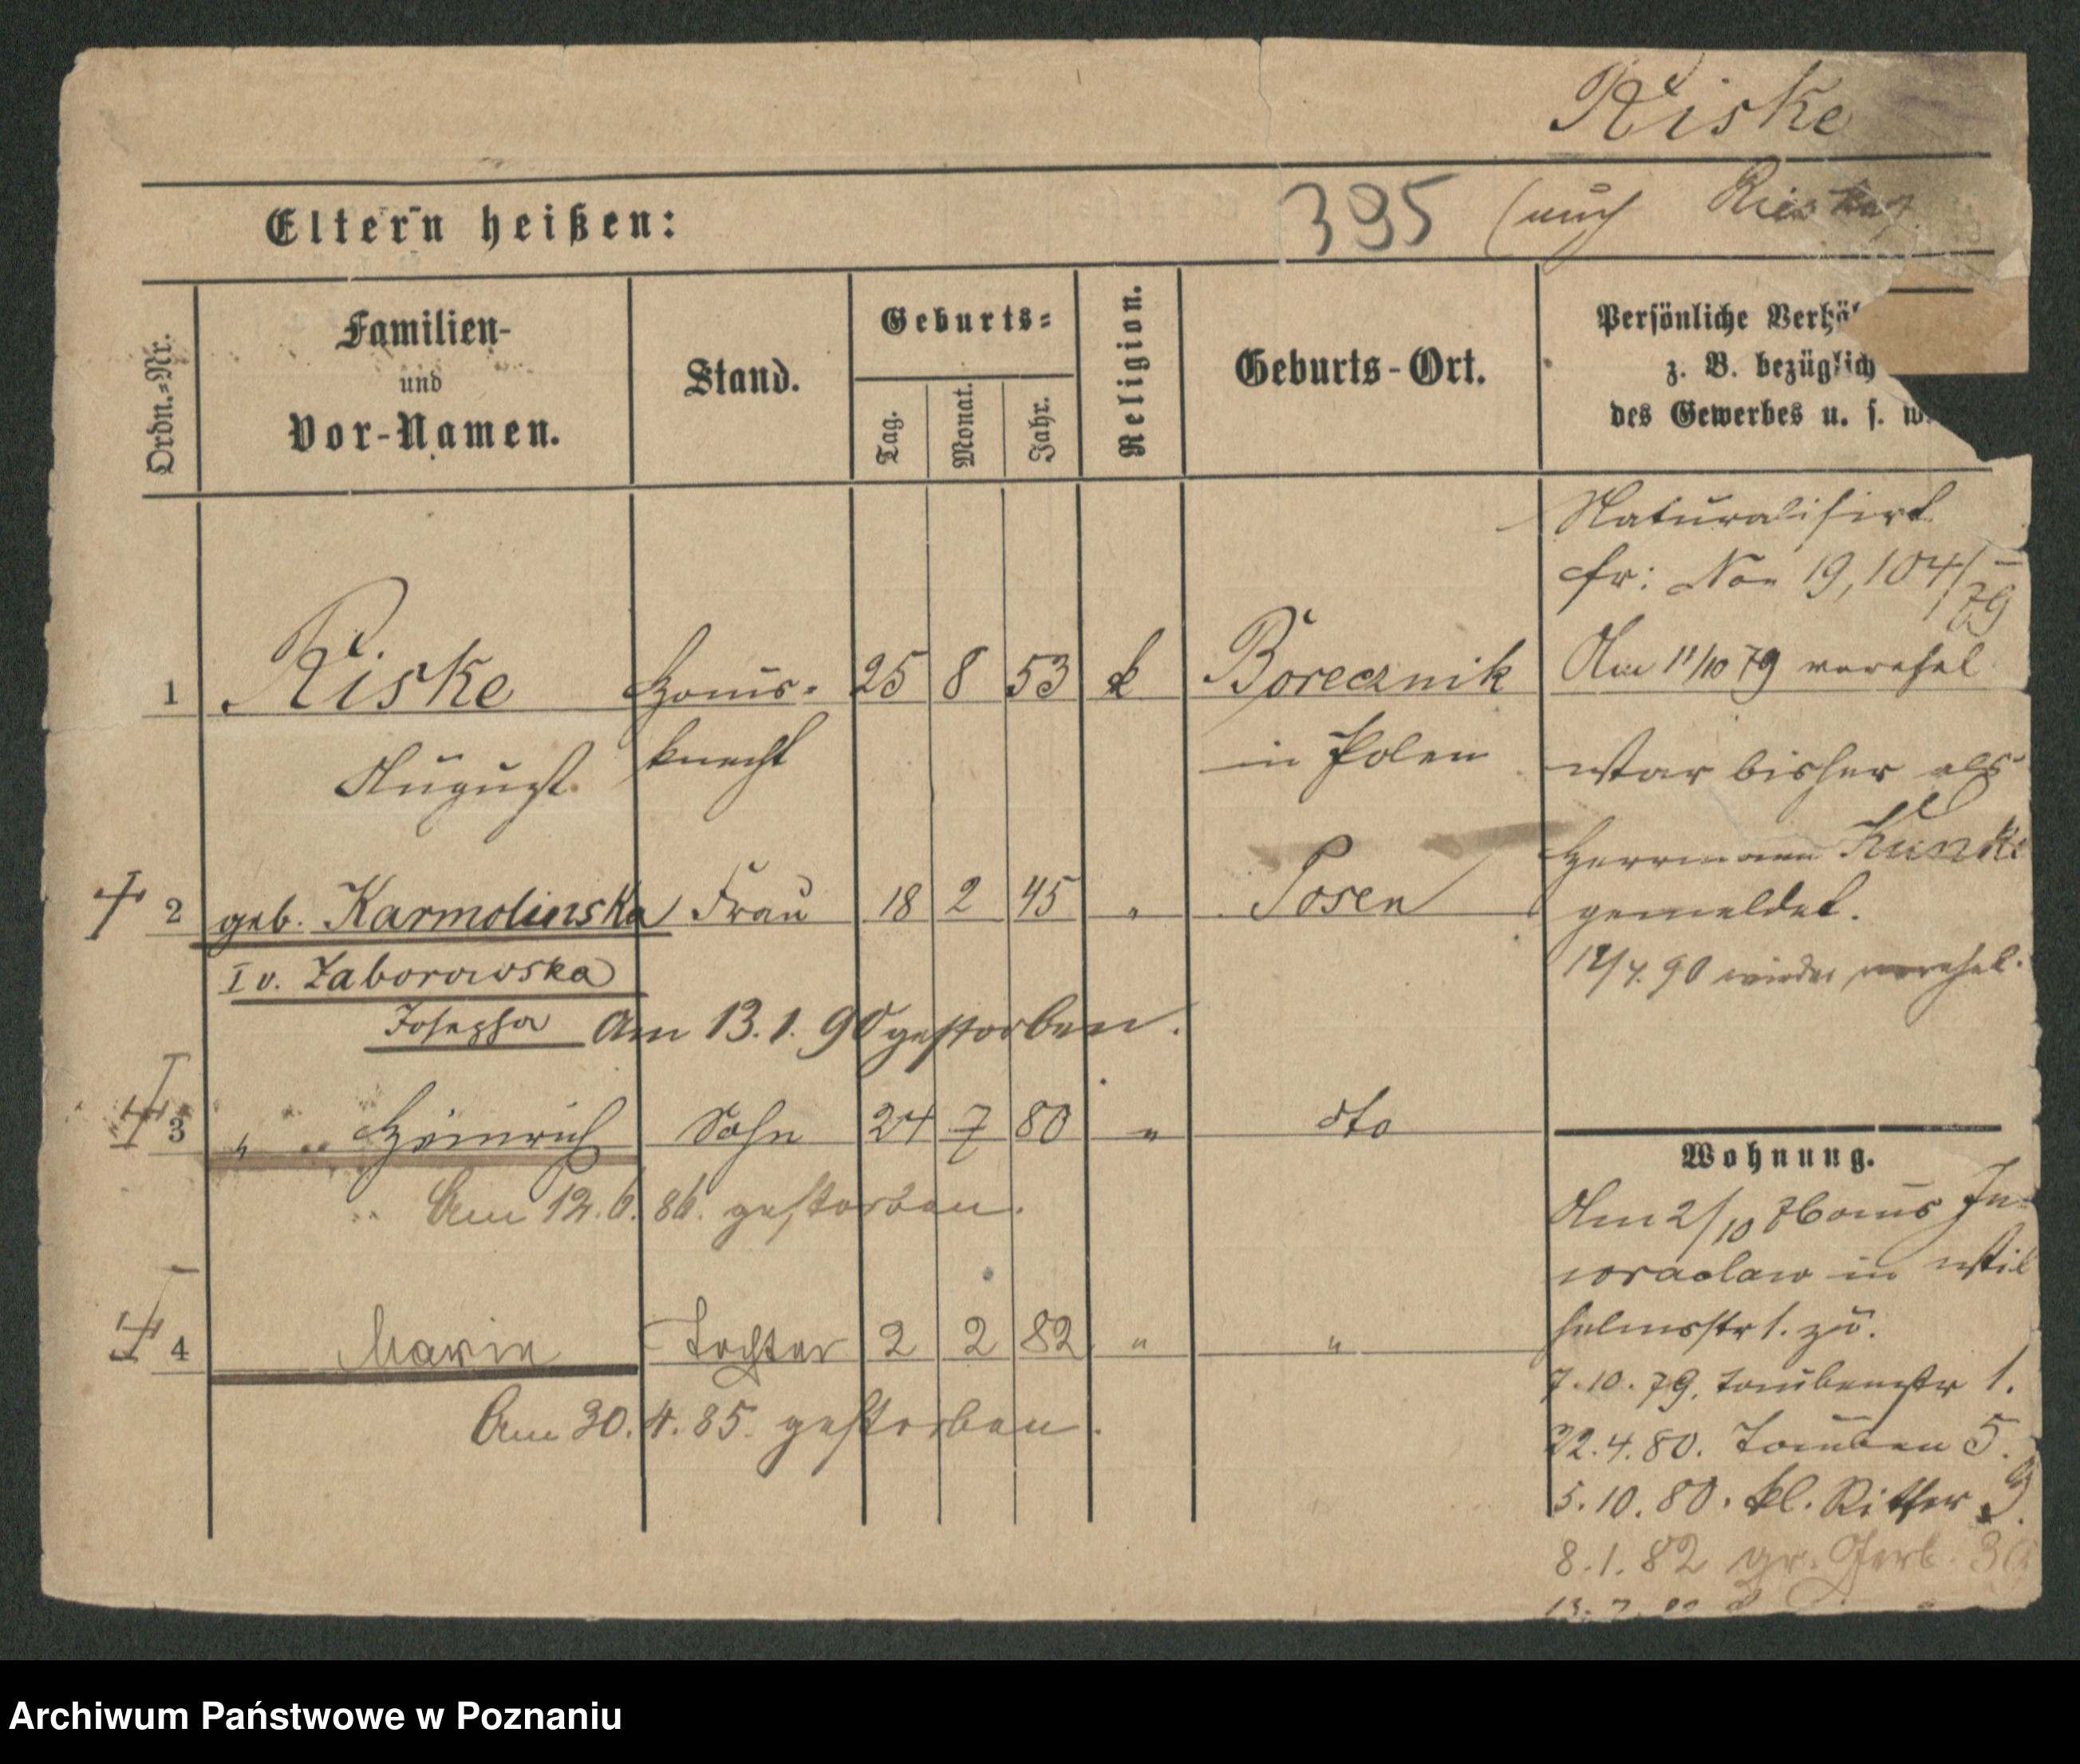 Riske
Eltern heißen:
395 (auch Rieske)
Ordn.-Nr.
Familien-
und
Vor-Namen.
Stand.
Geburts-
Tag.
Monat.
Jahr.
Religion.
Geburts-Ort.
Persönliche Verhäl
z. B. bezüglich
des Gewerbes u. s. w.
Naturalisirt
cfr: Non 19,104/79
1 Riske Haus- 25 8 53 k Borecznik
August knecht in Polen
Am 11/10 79 verehel
War bisher als
Herrmann Kunke
gemeldet.
2 geb. Karmolinska Frau 18 2 45 " Posen
I v. Zaborowska
Josepha Am 13.1.90 gestorben.
12/7.90 wieder verehel.
3 " Heinrich Sohn 24 7 80 " dto
Am 12.6.86. gestorben.
4 Marie Tochter 2 2 82 " "
Am 30.4.85. gestorben.
Wohnung.
Am 2/10 76 aus In-
owraclaw in Wil
helmsstr 1. zu.
7.10.79. Taubenstr 1.
22.4.80. Tauben 5.
5.10.80. kl. Ritter 9.
8.1.82 gr. Gerb.
Archiwum Państwowe w Poznaniu